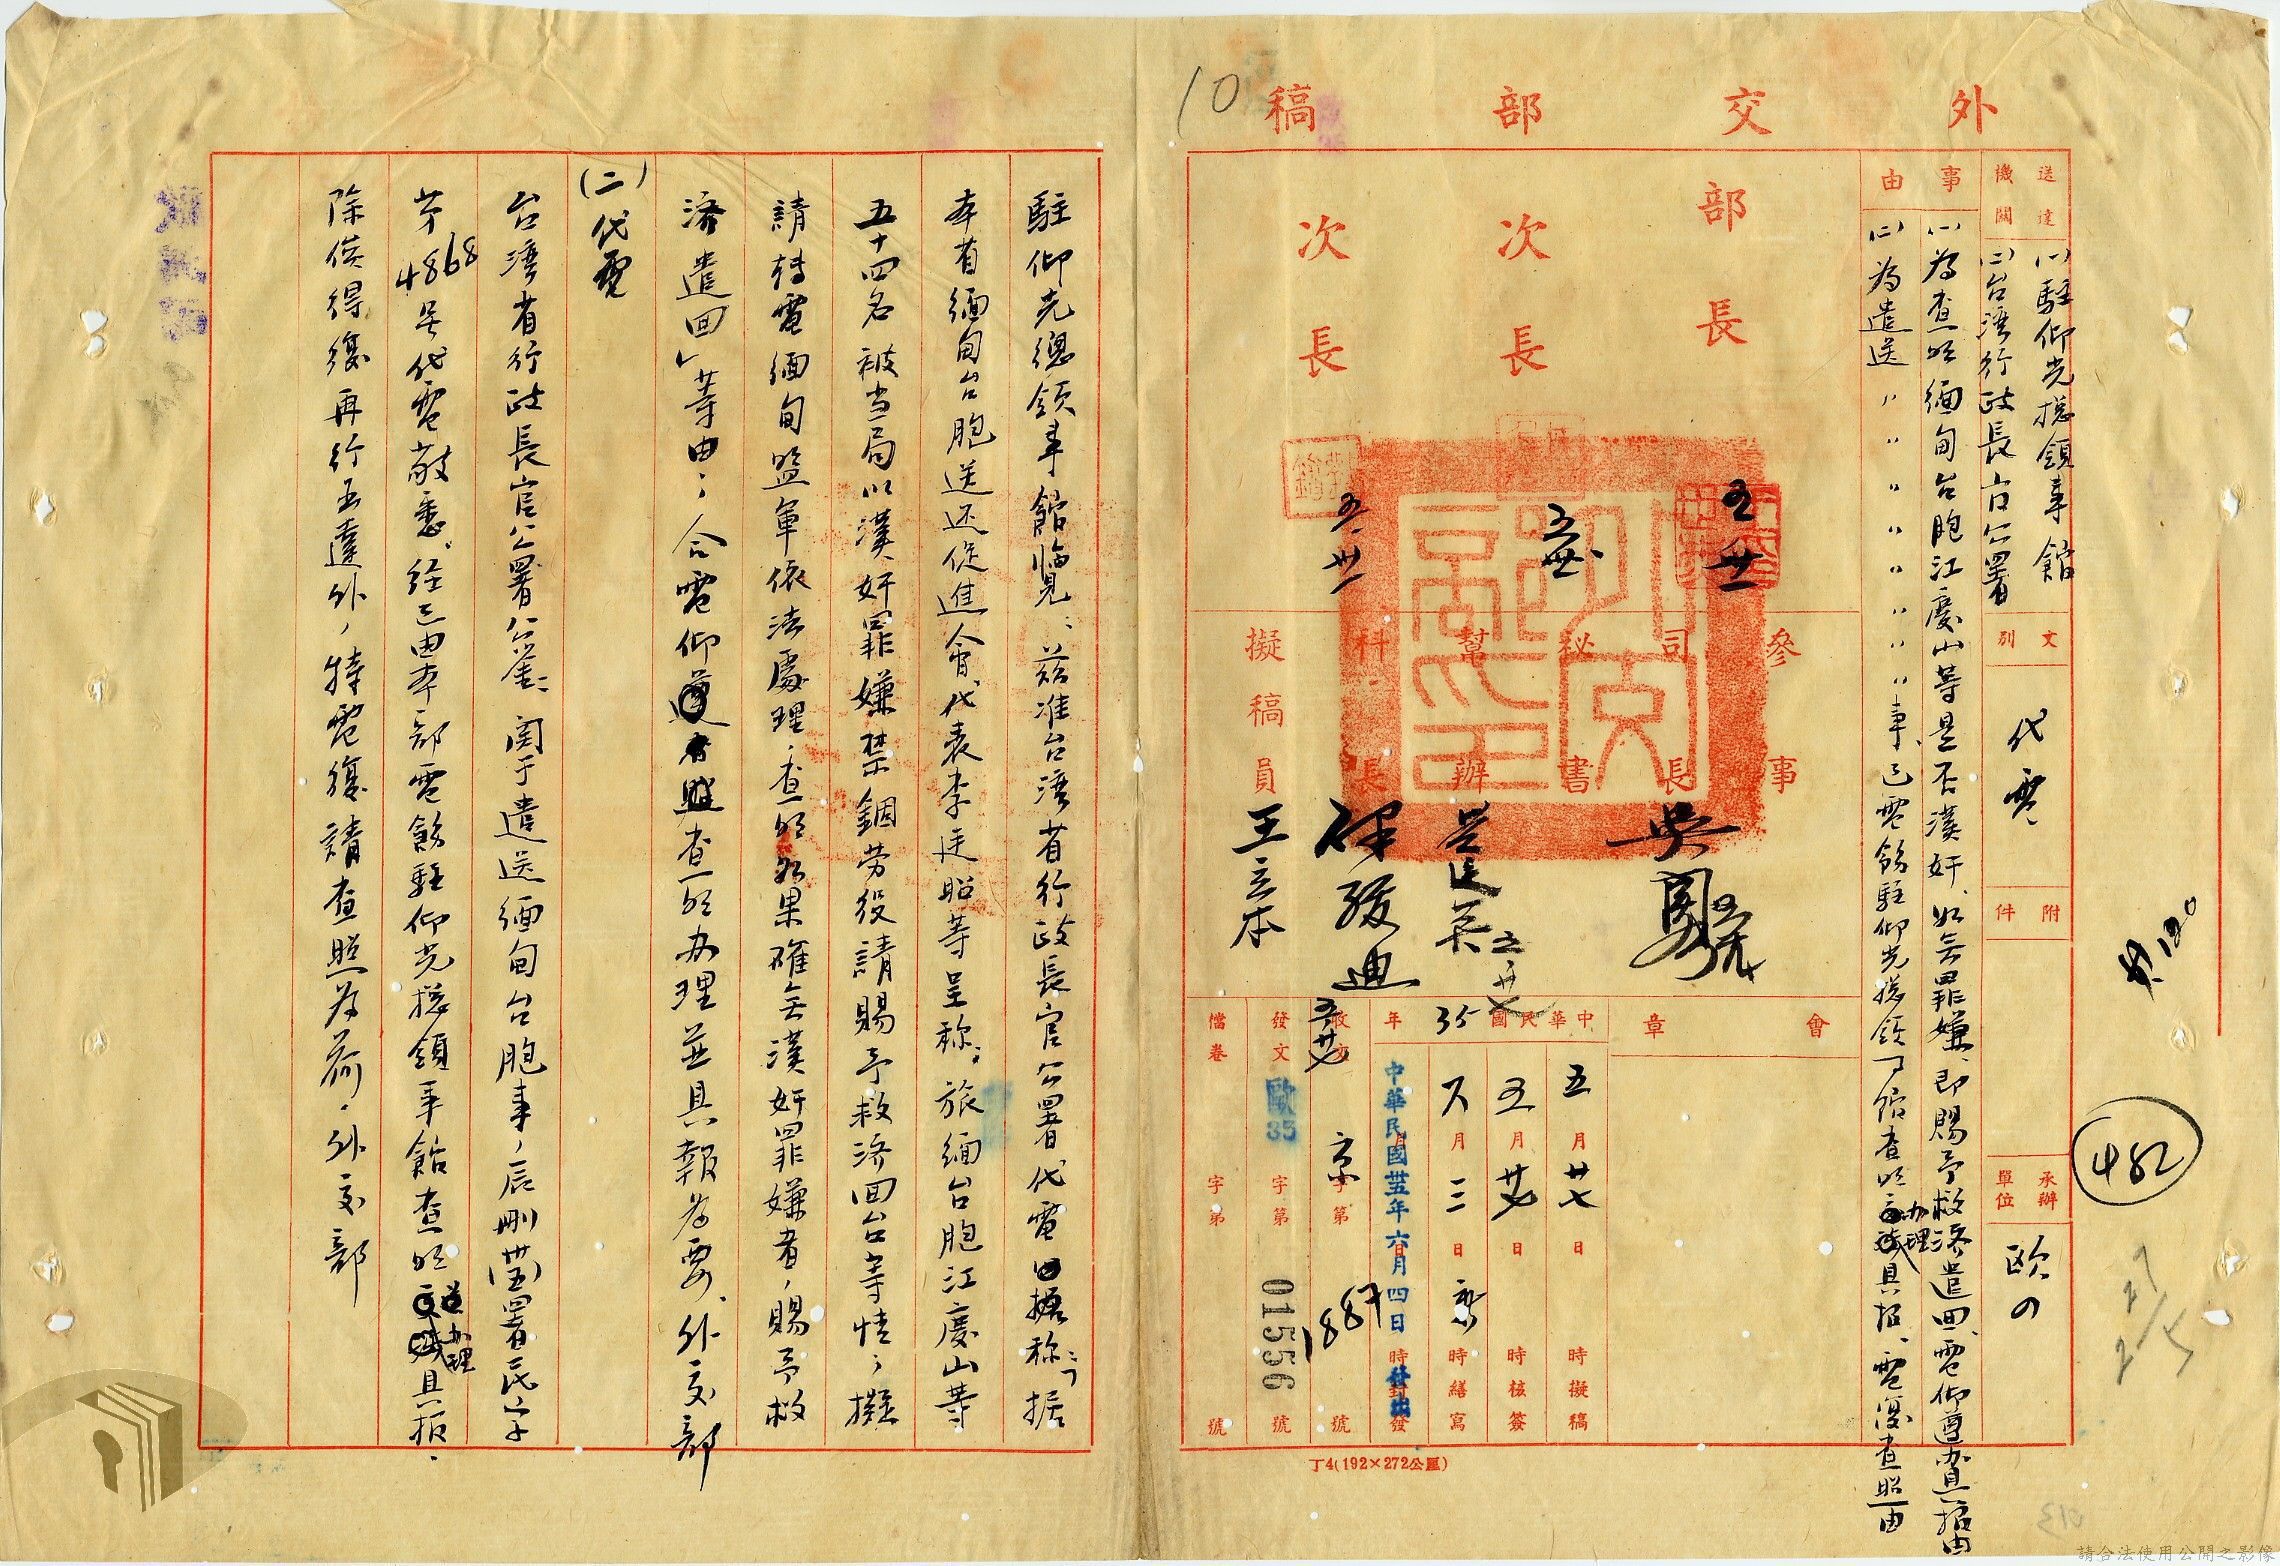 外交部稿
10
送達機關
(一)駐仰光總領事館
(二)台灣行政長官公署
文別
代電
附件
承辦單位
歐
事由
(一)為查明緬甸台胞江慶山等是否漢奸、如無罪嫌、即賜予救濟遣回、電仰遵辦具報由
(二)為遣送〃〃〃〃〃〃〃〃事、已電飭駐仰光總領館查明辦理具報、電復查照由
482
部長
次長
次長
五卅
五卅
參事
司長
秘書
幫辦
科長
擬稿員
王立本
會章
中華民國35年
五月廿七日 時擬稿
五月廿 日 時核簽
六月三日 時繕寫
中華民國卅五年六月四日 時封發
收文 京字第1887號
發文 歐35字第01556號
檔卷 字第 號
丁4(192×272公厘)
駐仰光總領事館臨覽:茲准台灣省行政長官公署代電稱:「据
本省緬甸台胞送还促進會代表李廷昭等呈称:旅緬台胞江慶山等
五十四名被当局以漢奸罪嫌禁錮劳役請賜予救济回台等情,擬
請轉電緬甸盟軍依法處理,查明如果確無漢奸罪嫌者,賜予救
濟遣回」等由;合電仰查明办理並具報為要、外交部
(二)代電
台灣省行政長官公署公鑒:関于遣送緬甸台胞事,辰刪(卅五)署民字
第4868号代電敬悉,經已由本部電飭駐仰光總領事館查明办理具报、
除俟得復再行函達外,特電復請查照為荷。外交部
013
請合法使用公開之影像